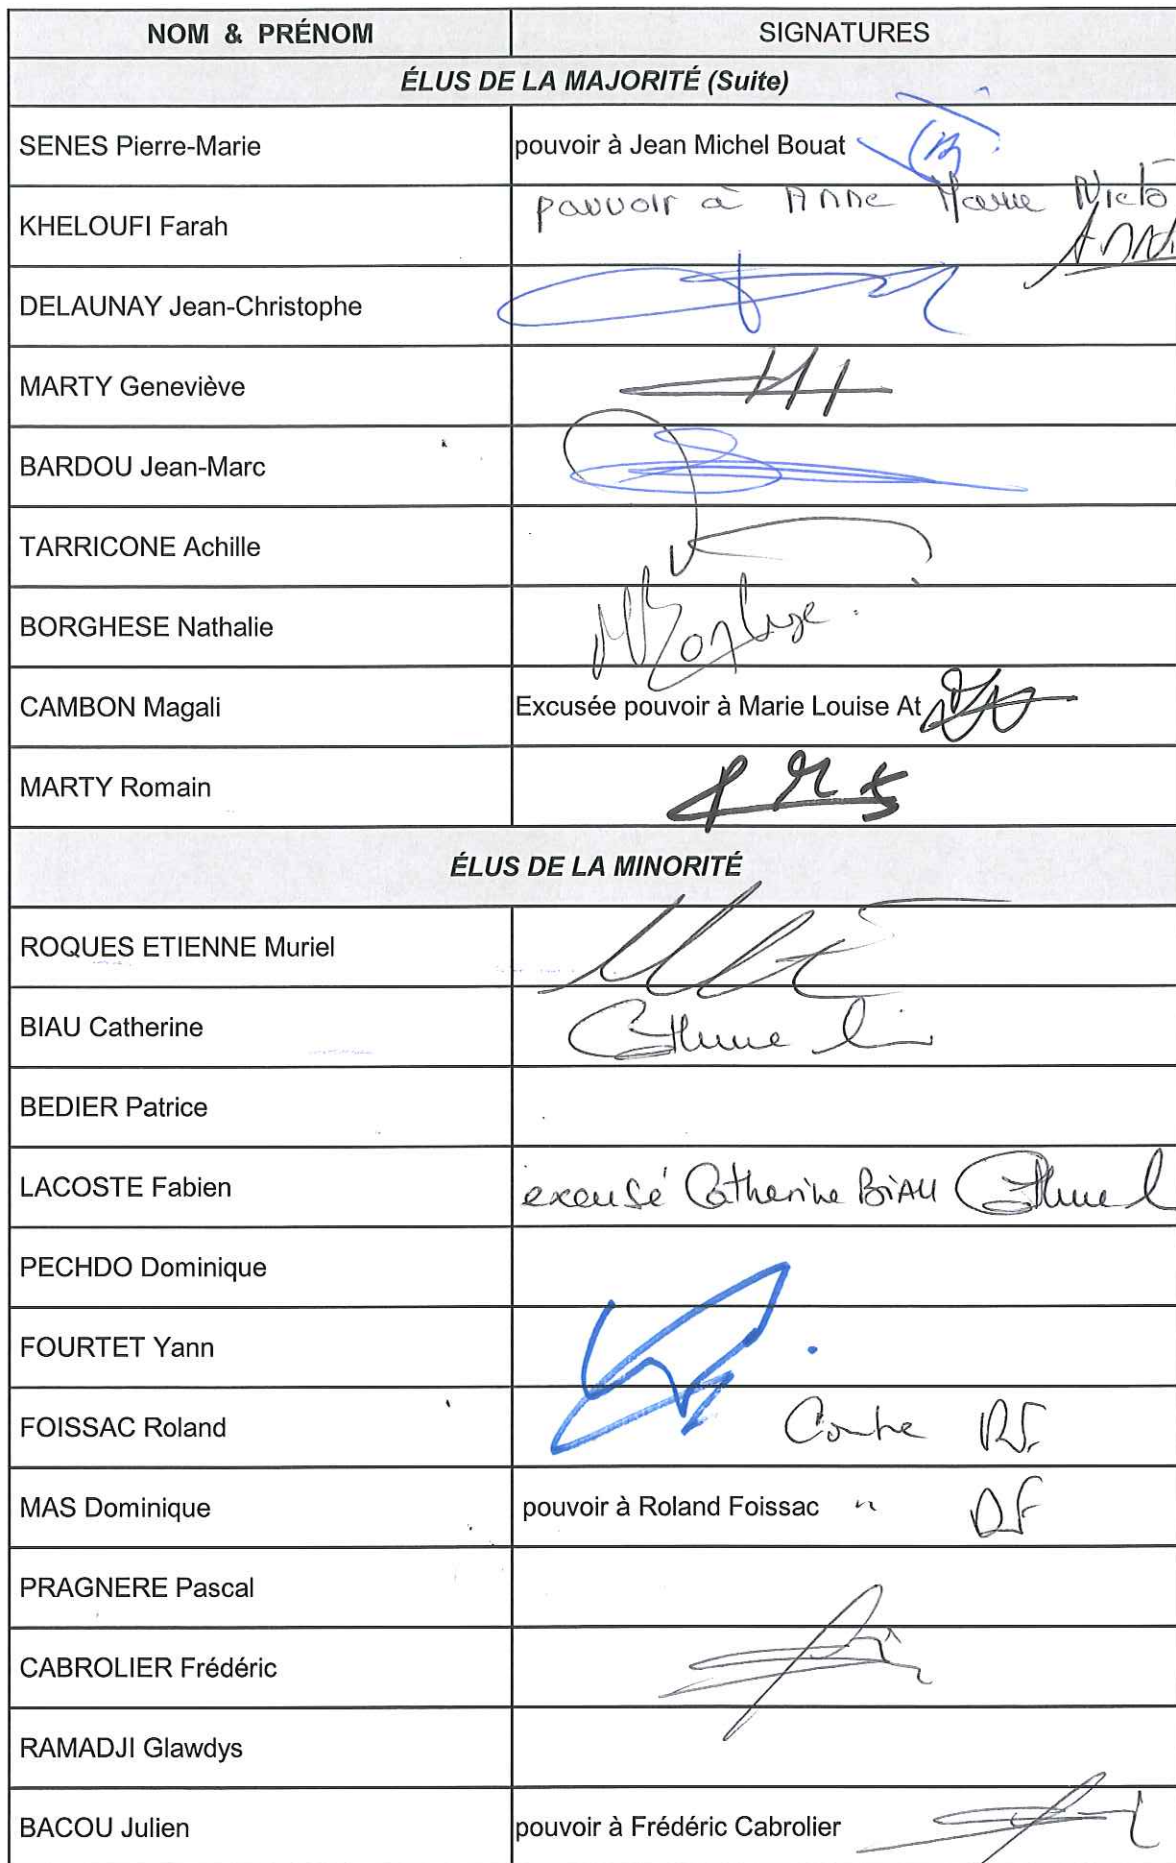 NOM & PRÉNOM SIGNATURES
ÉLUS DE LA MAJORITÉ (Suite)
SENES Pierre-Marie pouvoir à Jean Michel Bouat
KHELOUFI Farah pouvoir à Anne Marie Nieto
DELAUNAY Jean-Christophe
MARTY Geneviève
BARDOU Jean-Marc
TARRICONE Achille
BORGHESE Nathalie
CAMBON Magali Excusée pouvoir à Marie Louise At
MARTY Romain
ÉLUS DE LA MINORITÉ
ROQUES ETIENNE Muriel
BIAU Catherine
BEDIER Patrice
LACOSTE Fabien excusé Catherine BiAU
PECHDO Dominique
FOURTET Yann
FOISSAC Roland Contre
MAS Dominique pouvoir à Roland Foissac "
PRAGNERE Pascal
CABROLIER Frédéric
RAMADJI Glawdys
BACOU Julien pouvoir à Frédéric Cabrolier